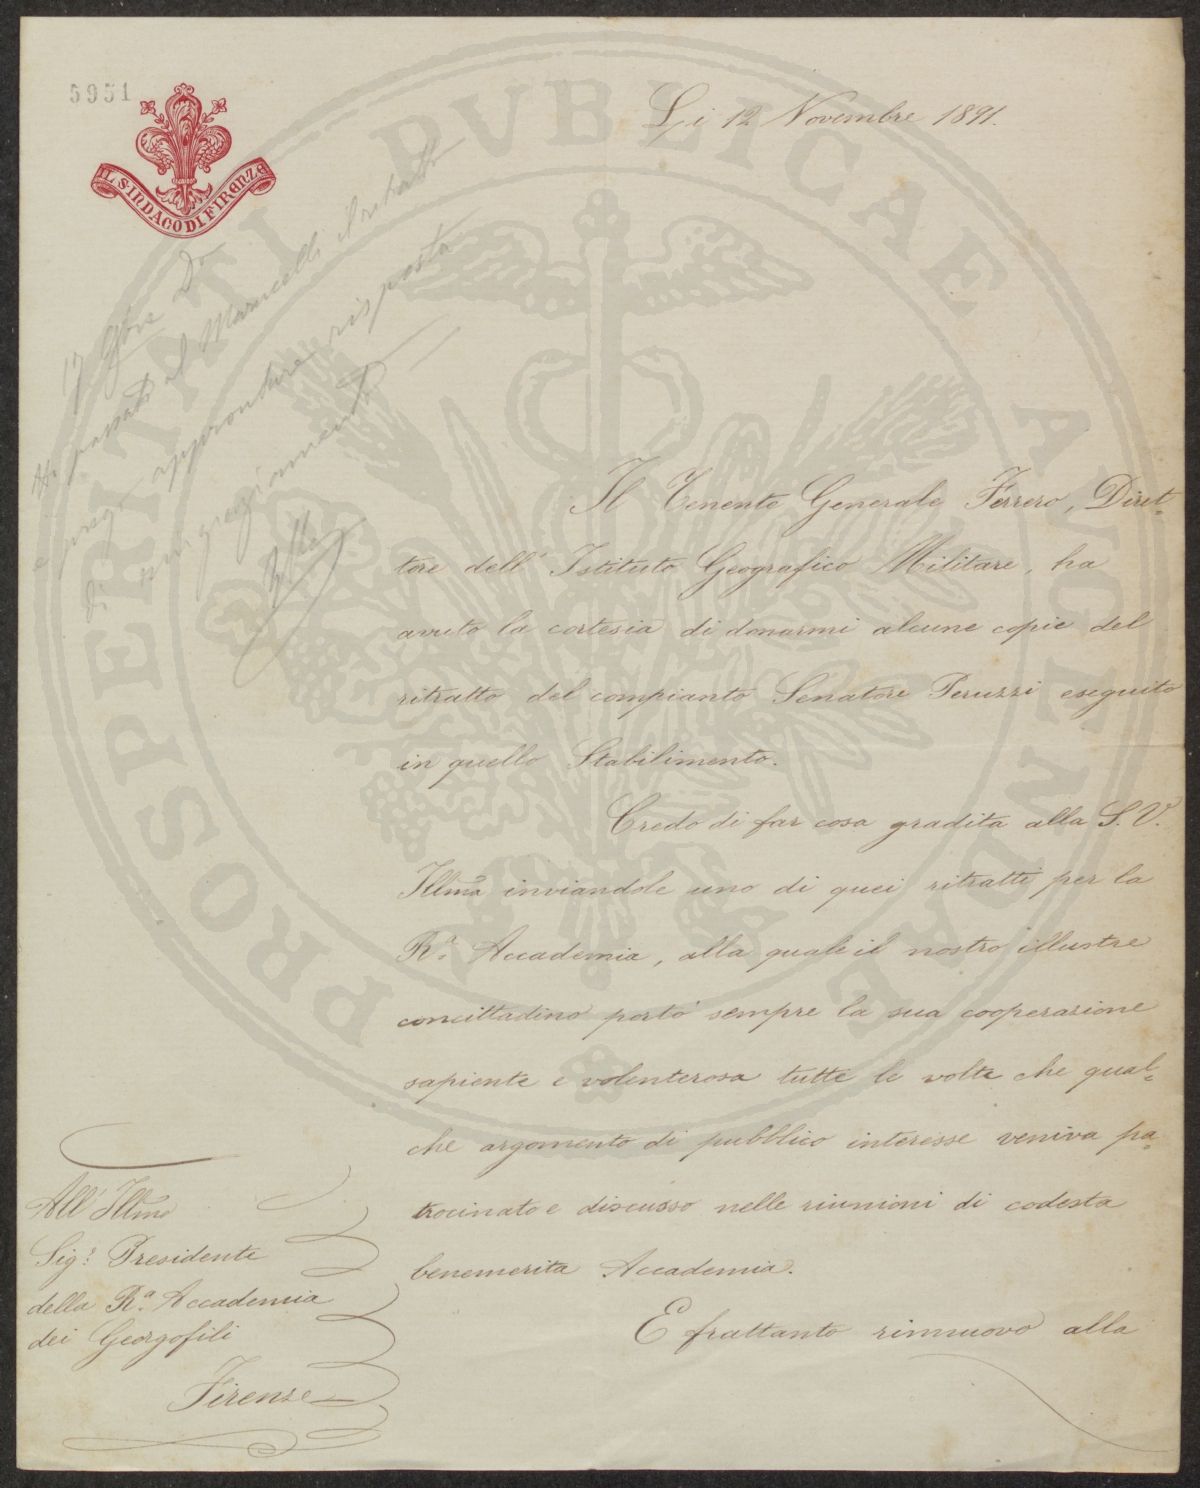 5951
IL SINDACO DI FIRENZE
Li 12 Novembre 1891.
17 9bre
risposta
ringraziamento
Il Tenente Generale Ferrero, Diret-
tore dell' Istituto Geografico Militare, ha
avuto la cortesia di donarmi alcune copie del
ritratto del compianto Senatore Peruzzi eseguito
in quello Stabilimento.
Credo di far cosa gradita alla S. V.
Illma inviandole uno di quei ritratti per la
R.a Accademia, alla quale il nostro illustre
concittadino portò sempre la sua cooperazione
sapiente e volenterosa tutte le volte che qual-
che argomento di pubblico interesse veniva pa-
trocinato e discusso nelle riunioni di codesta
benemerita Accademia.
E frattanto rinnuovo alla
All' Illmo
Sig.r Presidente
della R.a Accademia
dei Georgofili
Firenze
PROSPERITATI PVBLICAE AVGENDAE